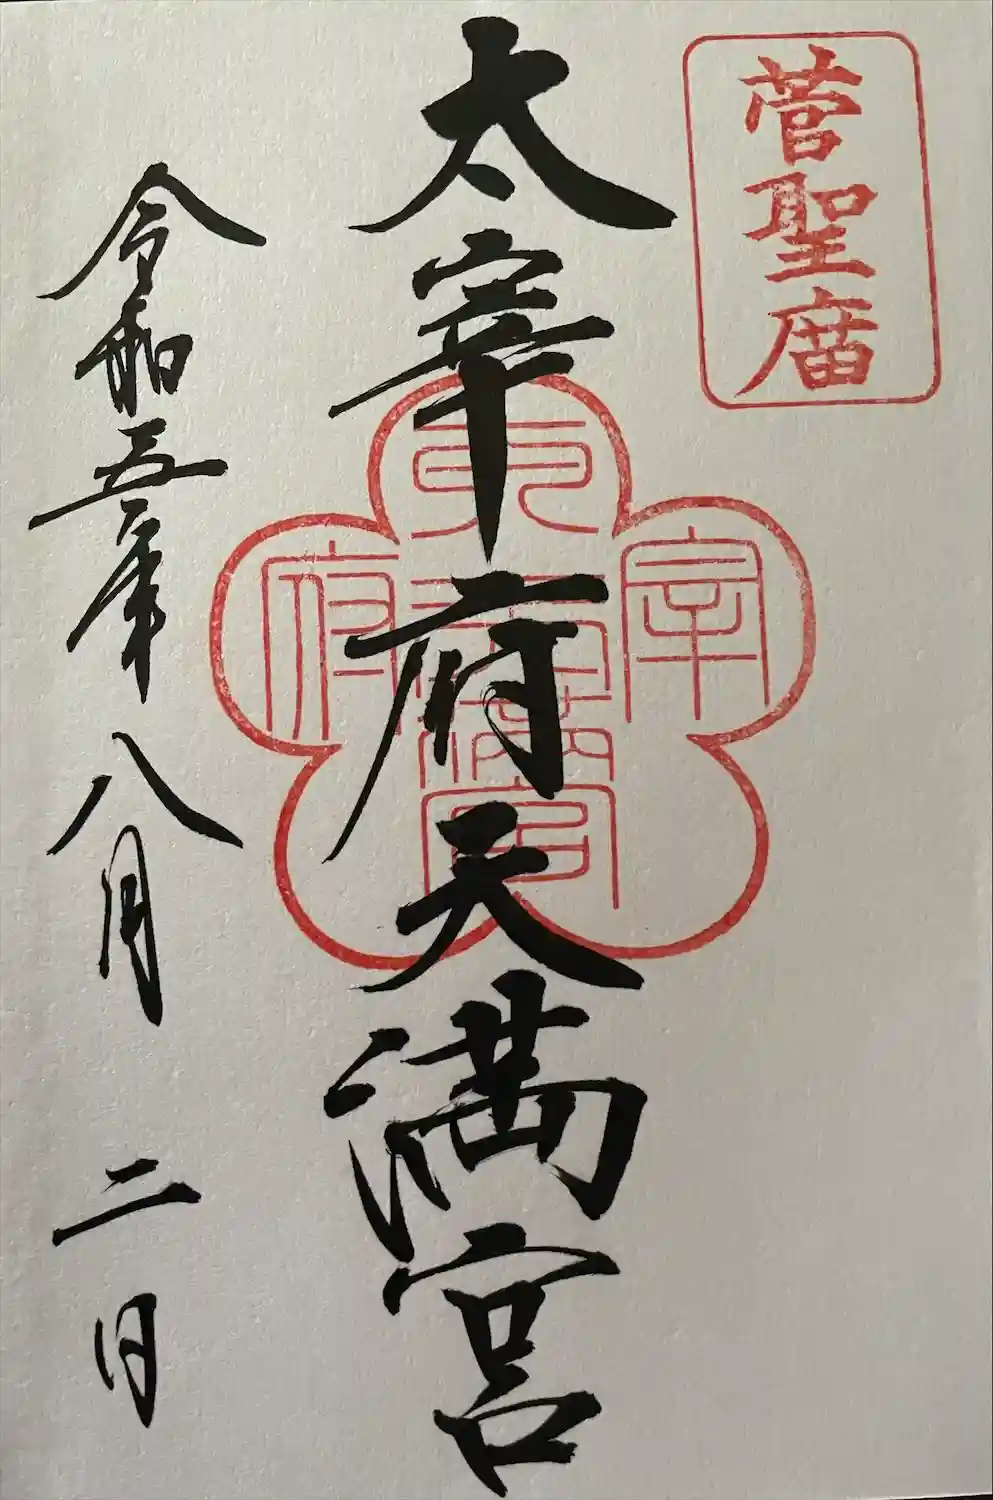 菅聖庿
太宰府天満宮
太宰府天満宮
令和五年八月二日